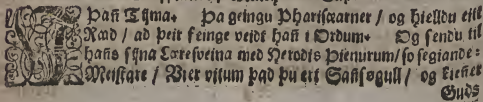 Þañ Tijma. Þa geingu Pharisæarner / og hielldu eitt
Ræd / ad þeir feinge veidt hañ i Ordum. Og sendu til
hañs sijna Læresveina med Herodis Þienurum / so segiande:
Meistare / Vier vitum þad þu ert Sañsøgull / og kiener
Guds